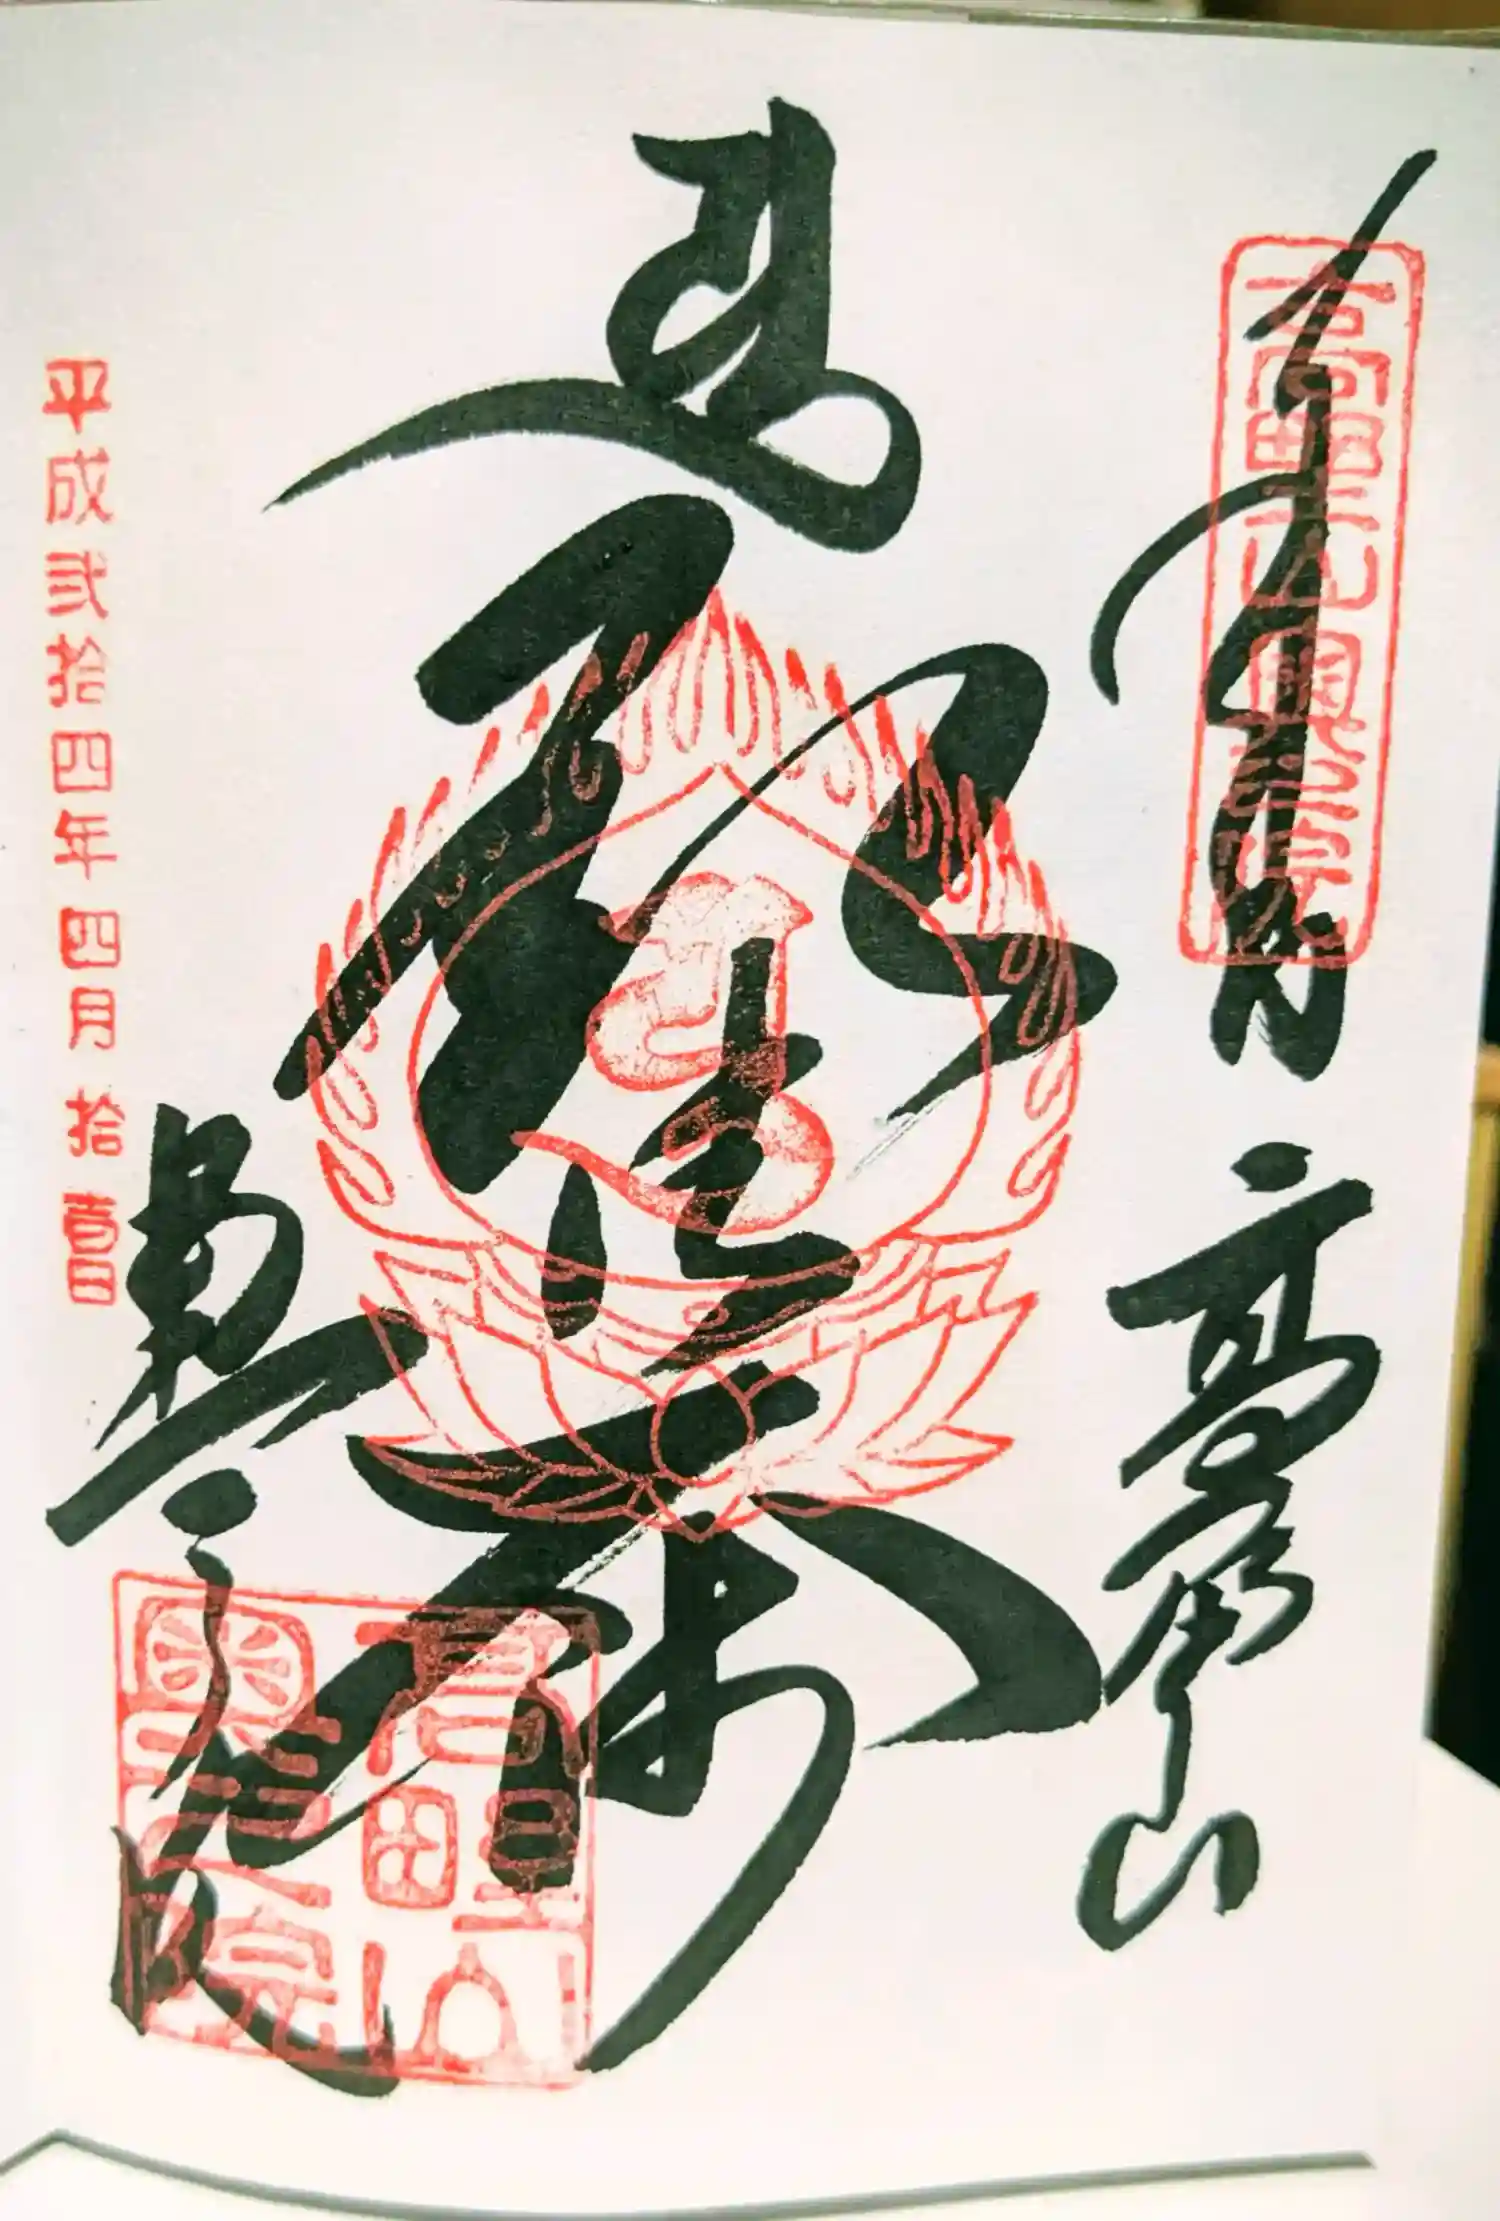 高野山奥之院
高野山
弘法大師
奥之院
平成弐拾四年四月拾壹日
高野山
奥之院